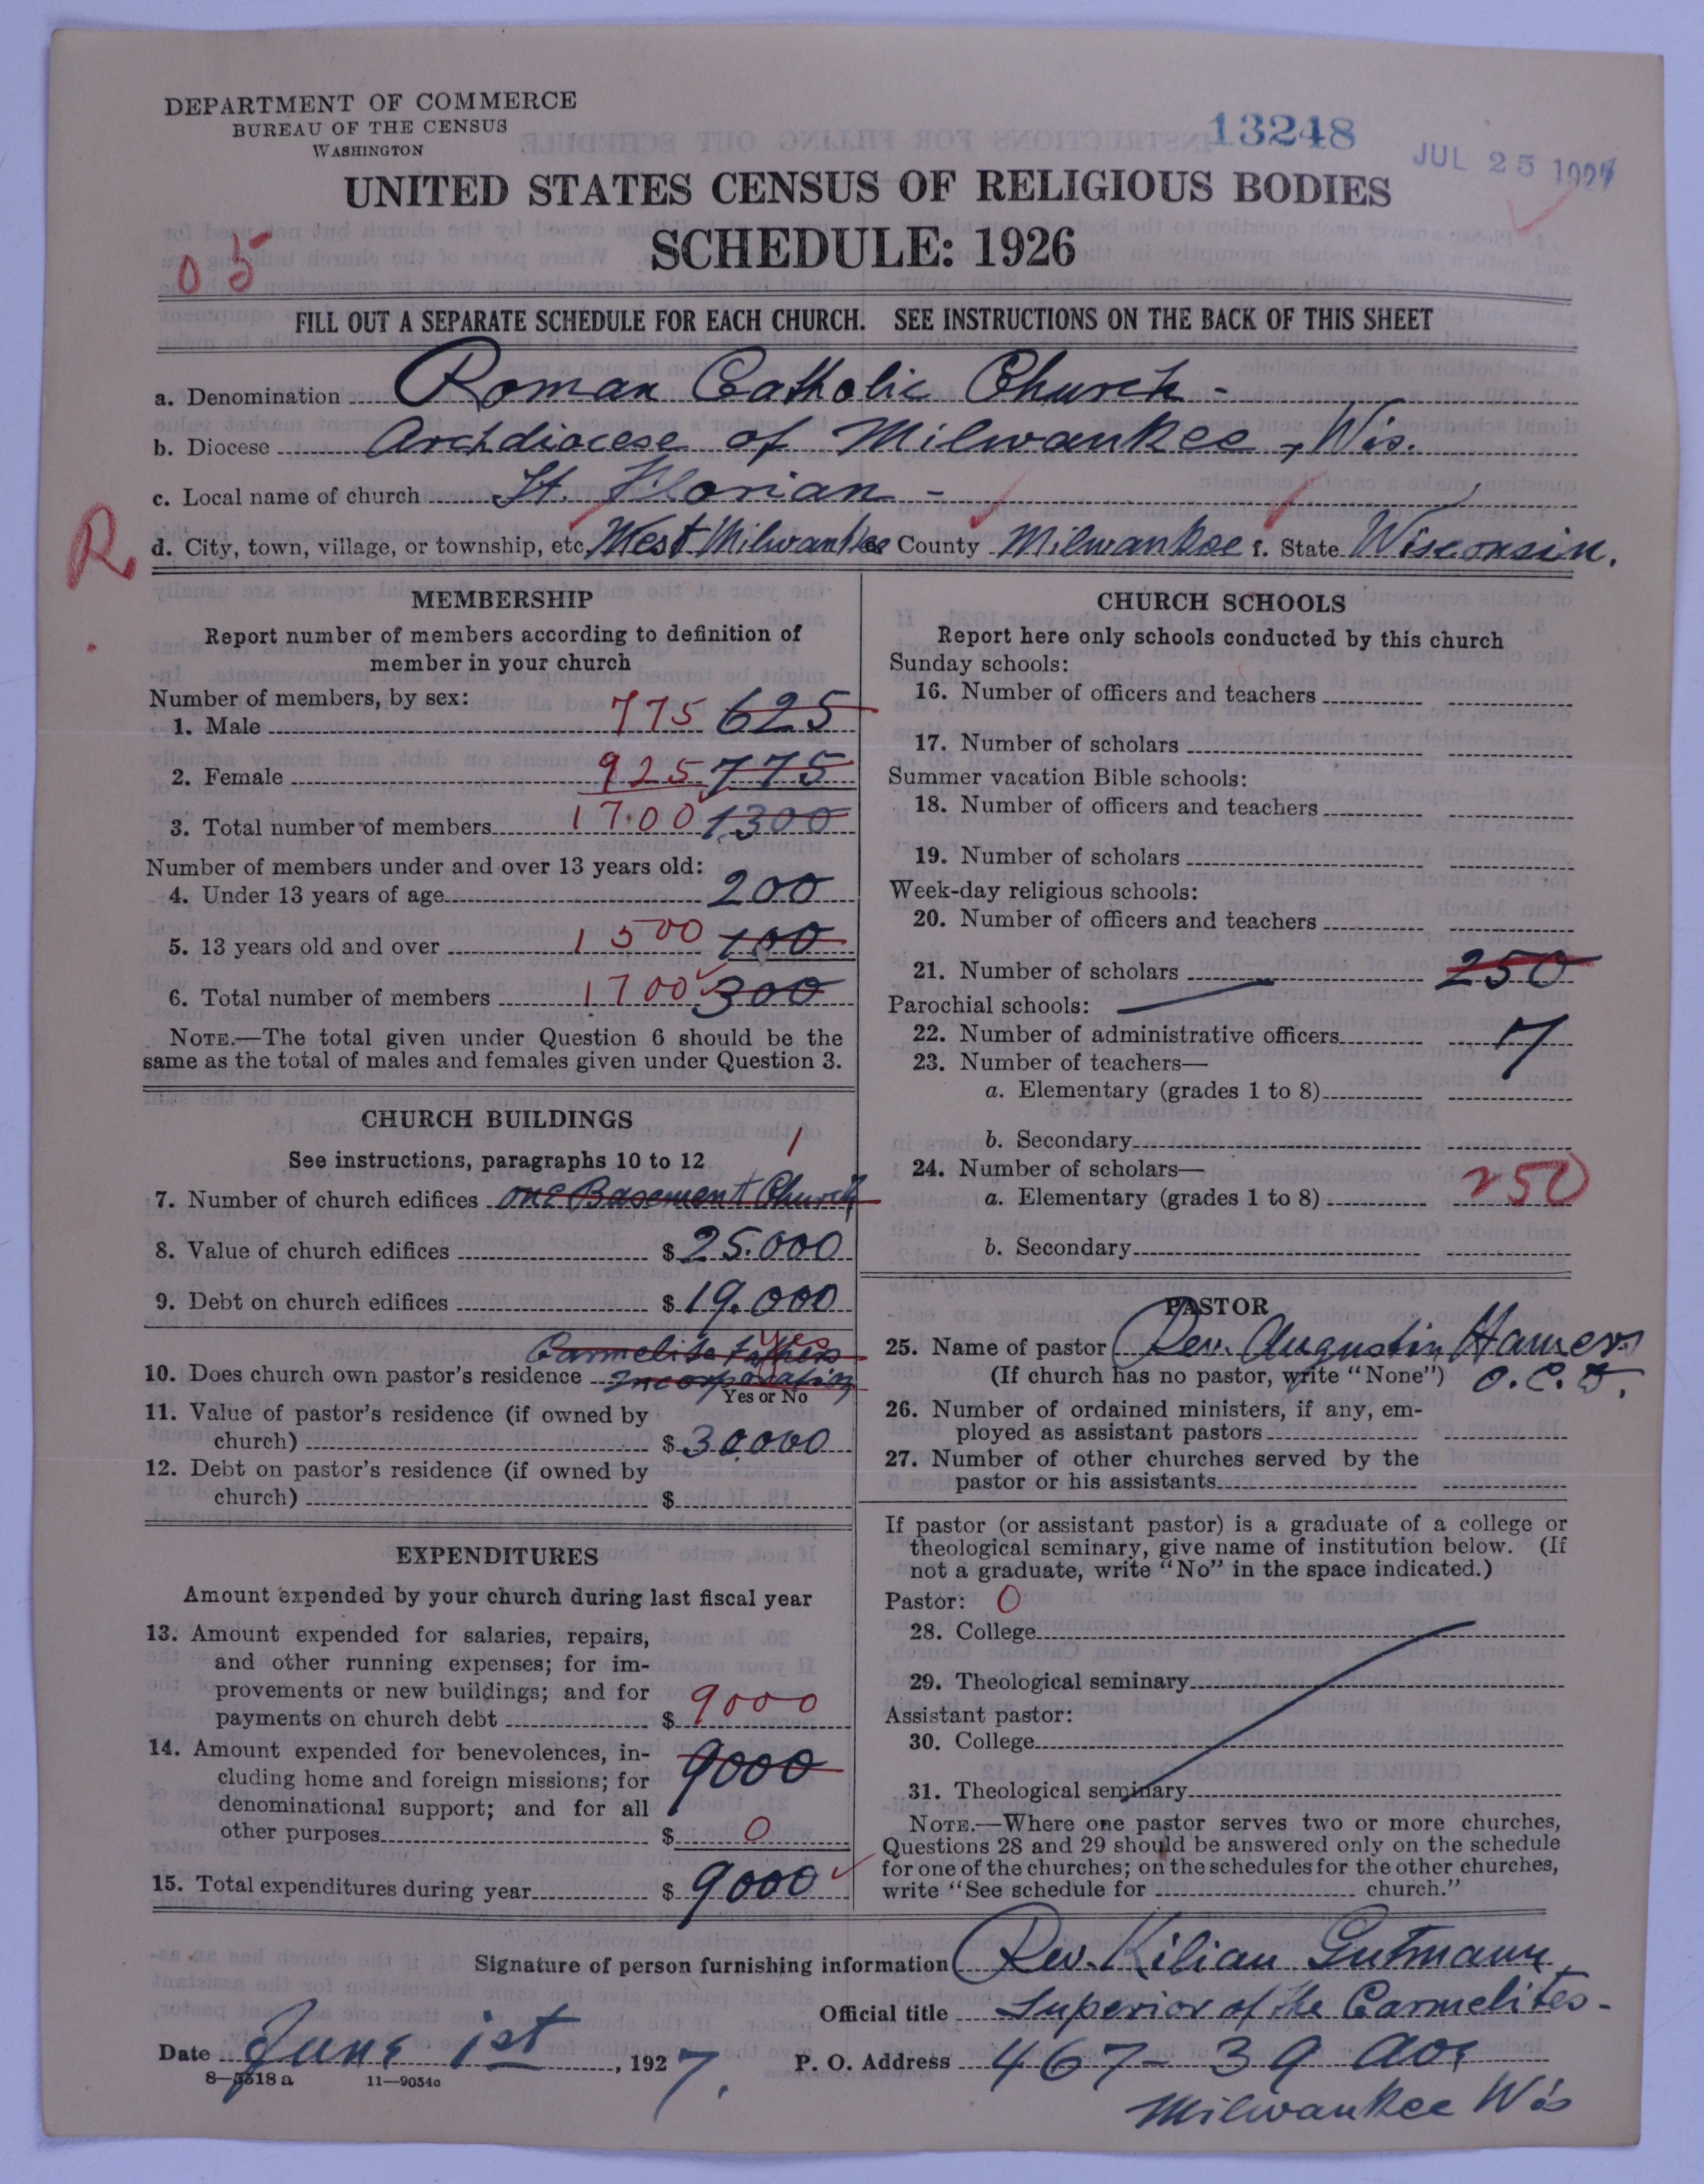 DEPARTMENT OF COMMERCE
BUREAU OF THE CENSUS
WASHINGTON
13248
JUL 25 1927
UNITED STATES CENSUS OF RELIGIOUS BODIES
SCHEDULE: 1926
05
FILL OUT A SEPARATE SCHEDULE FOR EACH CHURCH. SEE INSTRUCTIONS ON THE BACK OF THIS SHEET
a. Denomination Roman Catholic Church -
b. Diocese Archdiocese of Milwaukee, Wis.
c. Local name of church St. Florian -
R
d. City, town, village, or township, etc. West Milwaukee County Milwaukee f. State Wisconsin.
MEMBERSHIP
Report number of members according to definition of
member in your church
Number of members, by sex:
1. Male 775 625
2. Female 925 775
3. Total number of members 1700 1300
Number of members under and over 13 years old:
4. Under 13 years of age 200
5. 13 years old and over 1500 100
6. Total number of members 1700 300
NOTE.—The total given under Question 6 should be the
same as the total of males and females given under Question 3.
CHURCH BUILDINGS
See instructions, paragraphs 10 to 12
1
7. Number of church edifices one Basement Church
8. Value of church edifices $ 25.000
9. Debt on church edifices $ 19.000
Carmelite Fathers yes
10. Does church own pastor's residence Incorporation
Yes or No
11. Value of pastor's residence (if owned by
church) $ 30.000
12. Debt on pastor's residence (if owned by
church) $
EXPENDITURES
Amount expended by your church during last fiscal year
13. Amount expended for salaries, repairs,
and other running expenses; for im-
provements or new buildings; and for
payments on church debt $ 9000
14. Amount expended for benevolences, in-
cluding home and foreign missions; for 9000
denominational support; and for all
other purposes $ 0
15. Total expenditures during year $ 9000
CHURCH SCHOOLS
Report here only schools conducted by this church
Sunday schools:
16. Number of officers and teachers
17. Number of scholars
Summer vacation Bible schools:
18. Number of officers and teachers
19. Number of scholars
Week-day religious schools:
20. Number of officers and teachers
21. Number of scholars 250
Parochial schools:
22. Number of administrative officers 7
23. Number of teachers—
a. Elementary (grades 1 to 8)
b. Secondary
24. Number of scholars—
a. Elementary (grades 1 to 8) 250
b. Secondary
PASTOR
25. Name of pastor Rev. Augustin Hamers
(If church has no pastor, write "None") O.C.D.
26. Number of ordained ministers, if any, em-
ployed as assistant pastors
27. Number of other churches served by the
pastor or his assistants
If pastor (or assistant pastor) is a graduate of a college or
theological seminary, give name of institution below. (If
not a graduate, write "No" in the space indicated.)
Pastor: 0
28. College
29. Theological seminary
Assistant pastor:
30. College
31. Theological seminary
NOTE.—Where one pastor serves two or more churches,
Questions 28 and 29 should be answered only on the schedule
for one of the churches; on the schedules for the other churches,
write "See schedule for church."
Signature of person furnishing information Rev. Kilian Gutmann
Official title Superior of the Carmelites -
Date June 1st, 1927. P. O. Address 467 - 39 Ave
8—5518 a 11—9054c
Milwaukee Wis